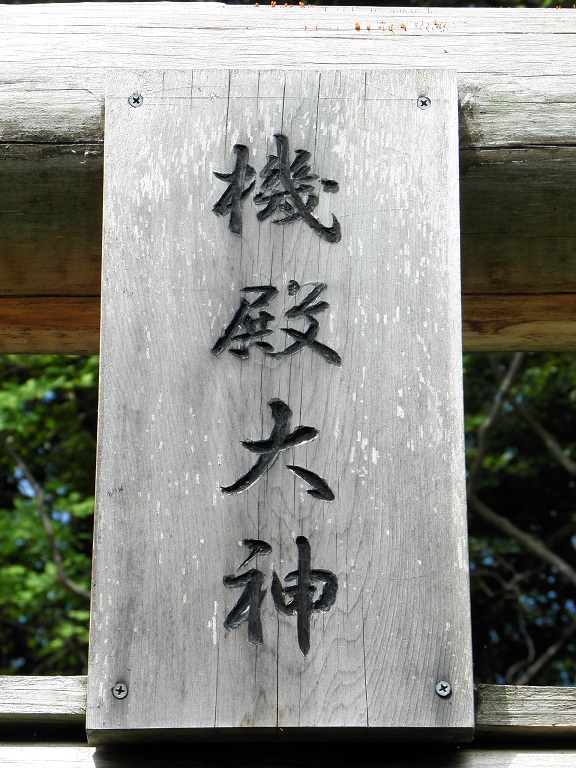 機殿大神